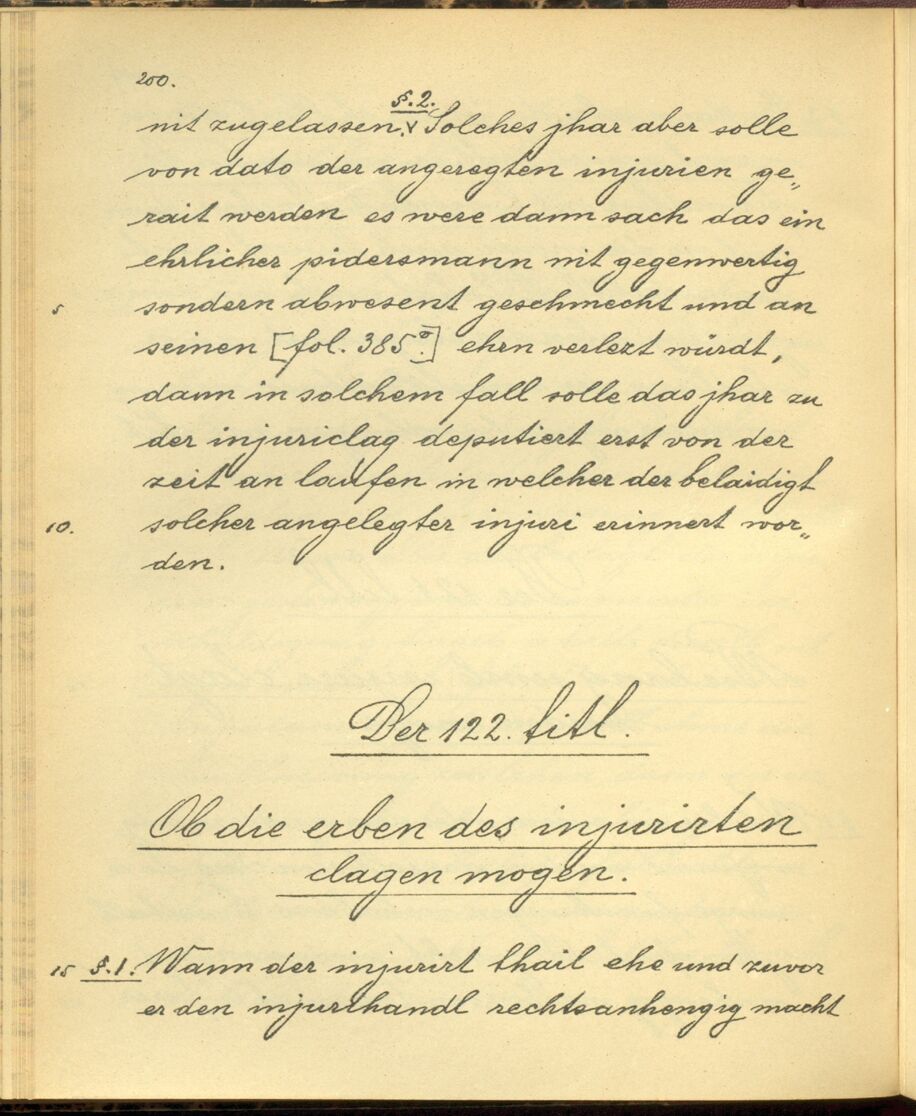 200.
§.2.
nit zugelassen. Solches jhar aber solle
von dato der angeregten injurien ge„
rait werden es were dann sach das ein
ehrlicher pidersmann nit gegenwertig
5 sondern abwesent geschmecht und an
seinen [fol. 385ᵒ.] ehrn verlezt würdt,
dann in solchem fall solle das jhar zu
der injuriclag deputiert erst von der
zeit an laufen in welcher der belaidigt
10. solcher angelegter injuri erinnert wor„
den.
Der 122. titl.
Ob die erben des injurirten
clagen mogen.
15 §.1. Wann der injurirt thail ehe und zuvor
er den injurihandl rechtsanhengig macht